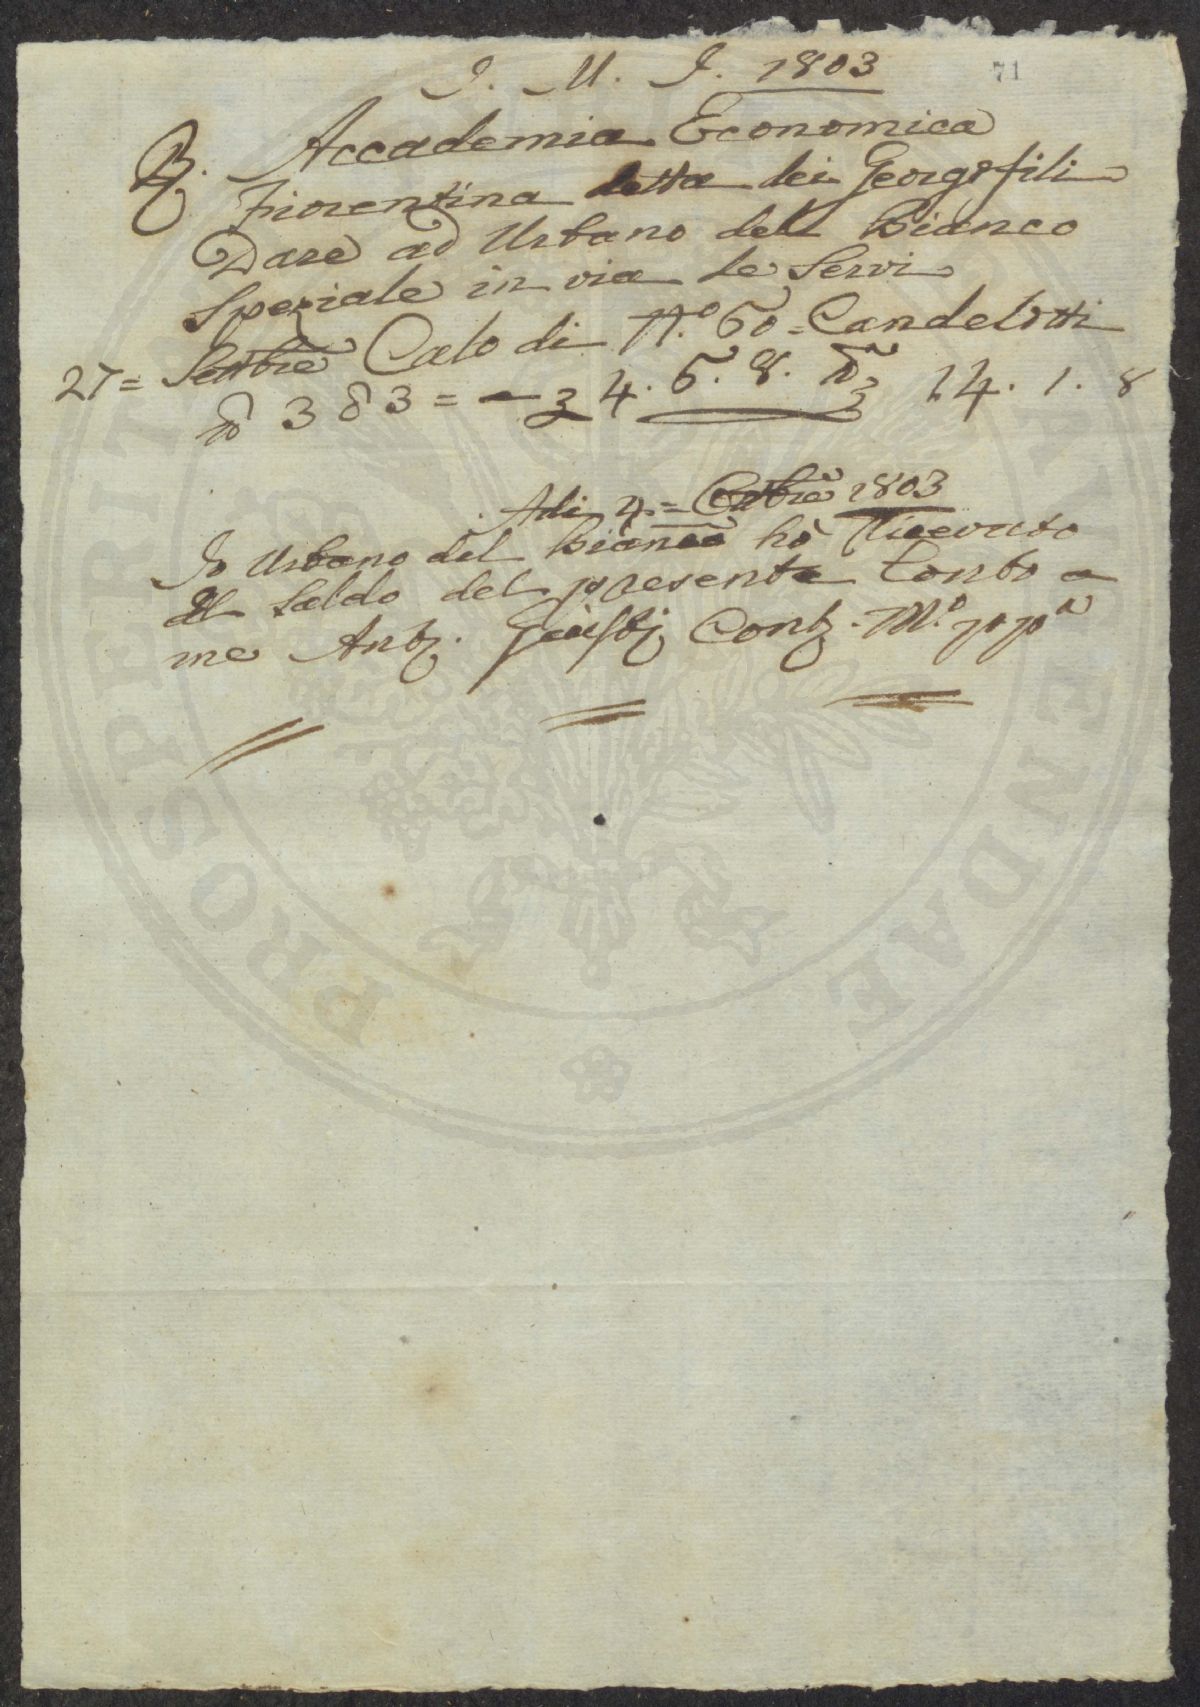 J. M. J. 1803
71
R. Accademia Economica
Fiorentina detta dei Georgofili
Dare ad Urbano del Bianco
Speziale in via de Servi
27 = Settbre Calo di N.o 60 = Candelotti
lb 3 δ 3 = - 3 4. 6. 8. lb 3 14. 1. 8
Adi 4 = Ottbre 1803
Io Urbano del Bianco ho Riceuuto
il Saldo del presente Conto
me Anto. Giusti Cont. M.o pp.a
PROSPERITATI AUGENDAE